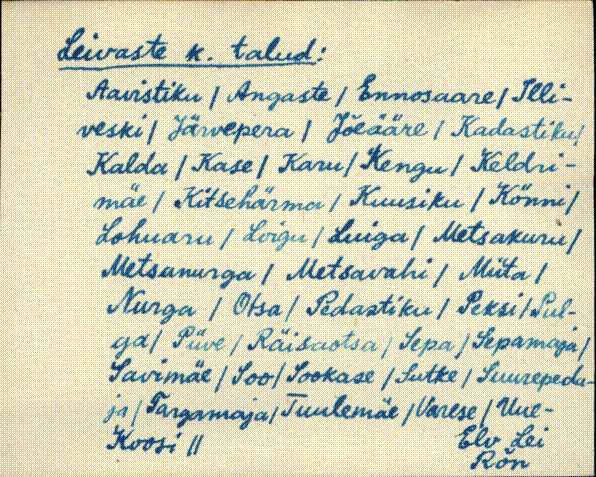 Leivaste k. talud:
Aavistiku / Angaste / Ennosaare / Illi-
veski / Järvepera / Jõeääre / Kadastiku /
Kalda / Kase / Karu / Kengu / Keldri-
mäe / Kitsehärma / Kuusiku / Kõnni /
Lohuaru / Loigu / Luiga / Metsakuru /
Metsanurga / Metsavahi / Müta /
Nurga / Otsa / Pedastiku / Peksi / Pul-
ga / Püve / Räisaotsa / Sepa / Sepamaja /
Savimäe / Soo / Sookase / Sutke / Suurepeda-
ja / Targamaja / Tuulemäe / Varese / Uue-
Koosi //
Elv Lei
Rõn